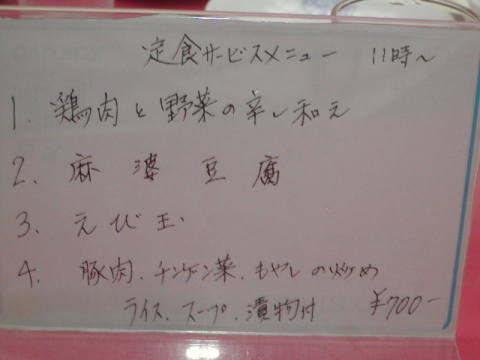 定食サービスメニュー 11時〜
1. 鶏肉と野菜の辛し和え
2. 麻婆豆腐
3. えび玉
4. 豚肉、チンゲン菜、もやしの炒め
ライス、スープ、漬物付 ¥700-